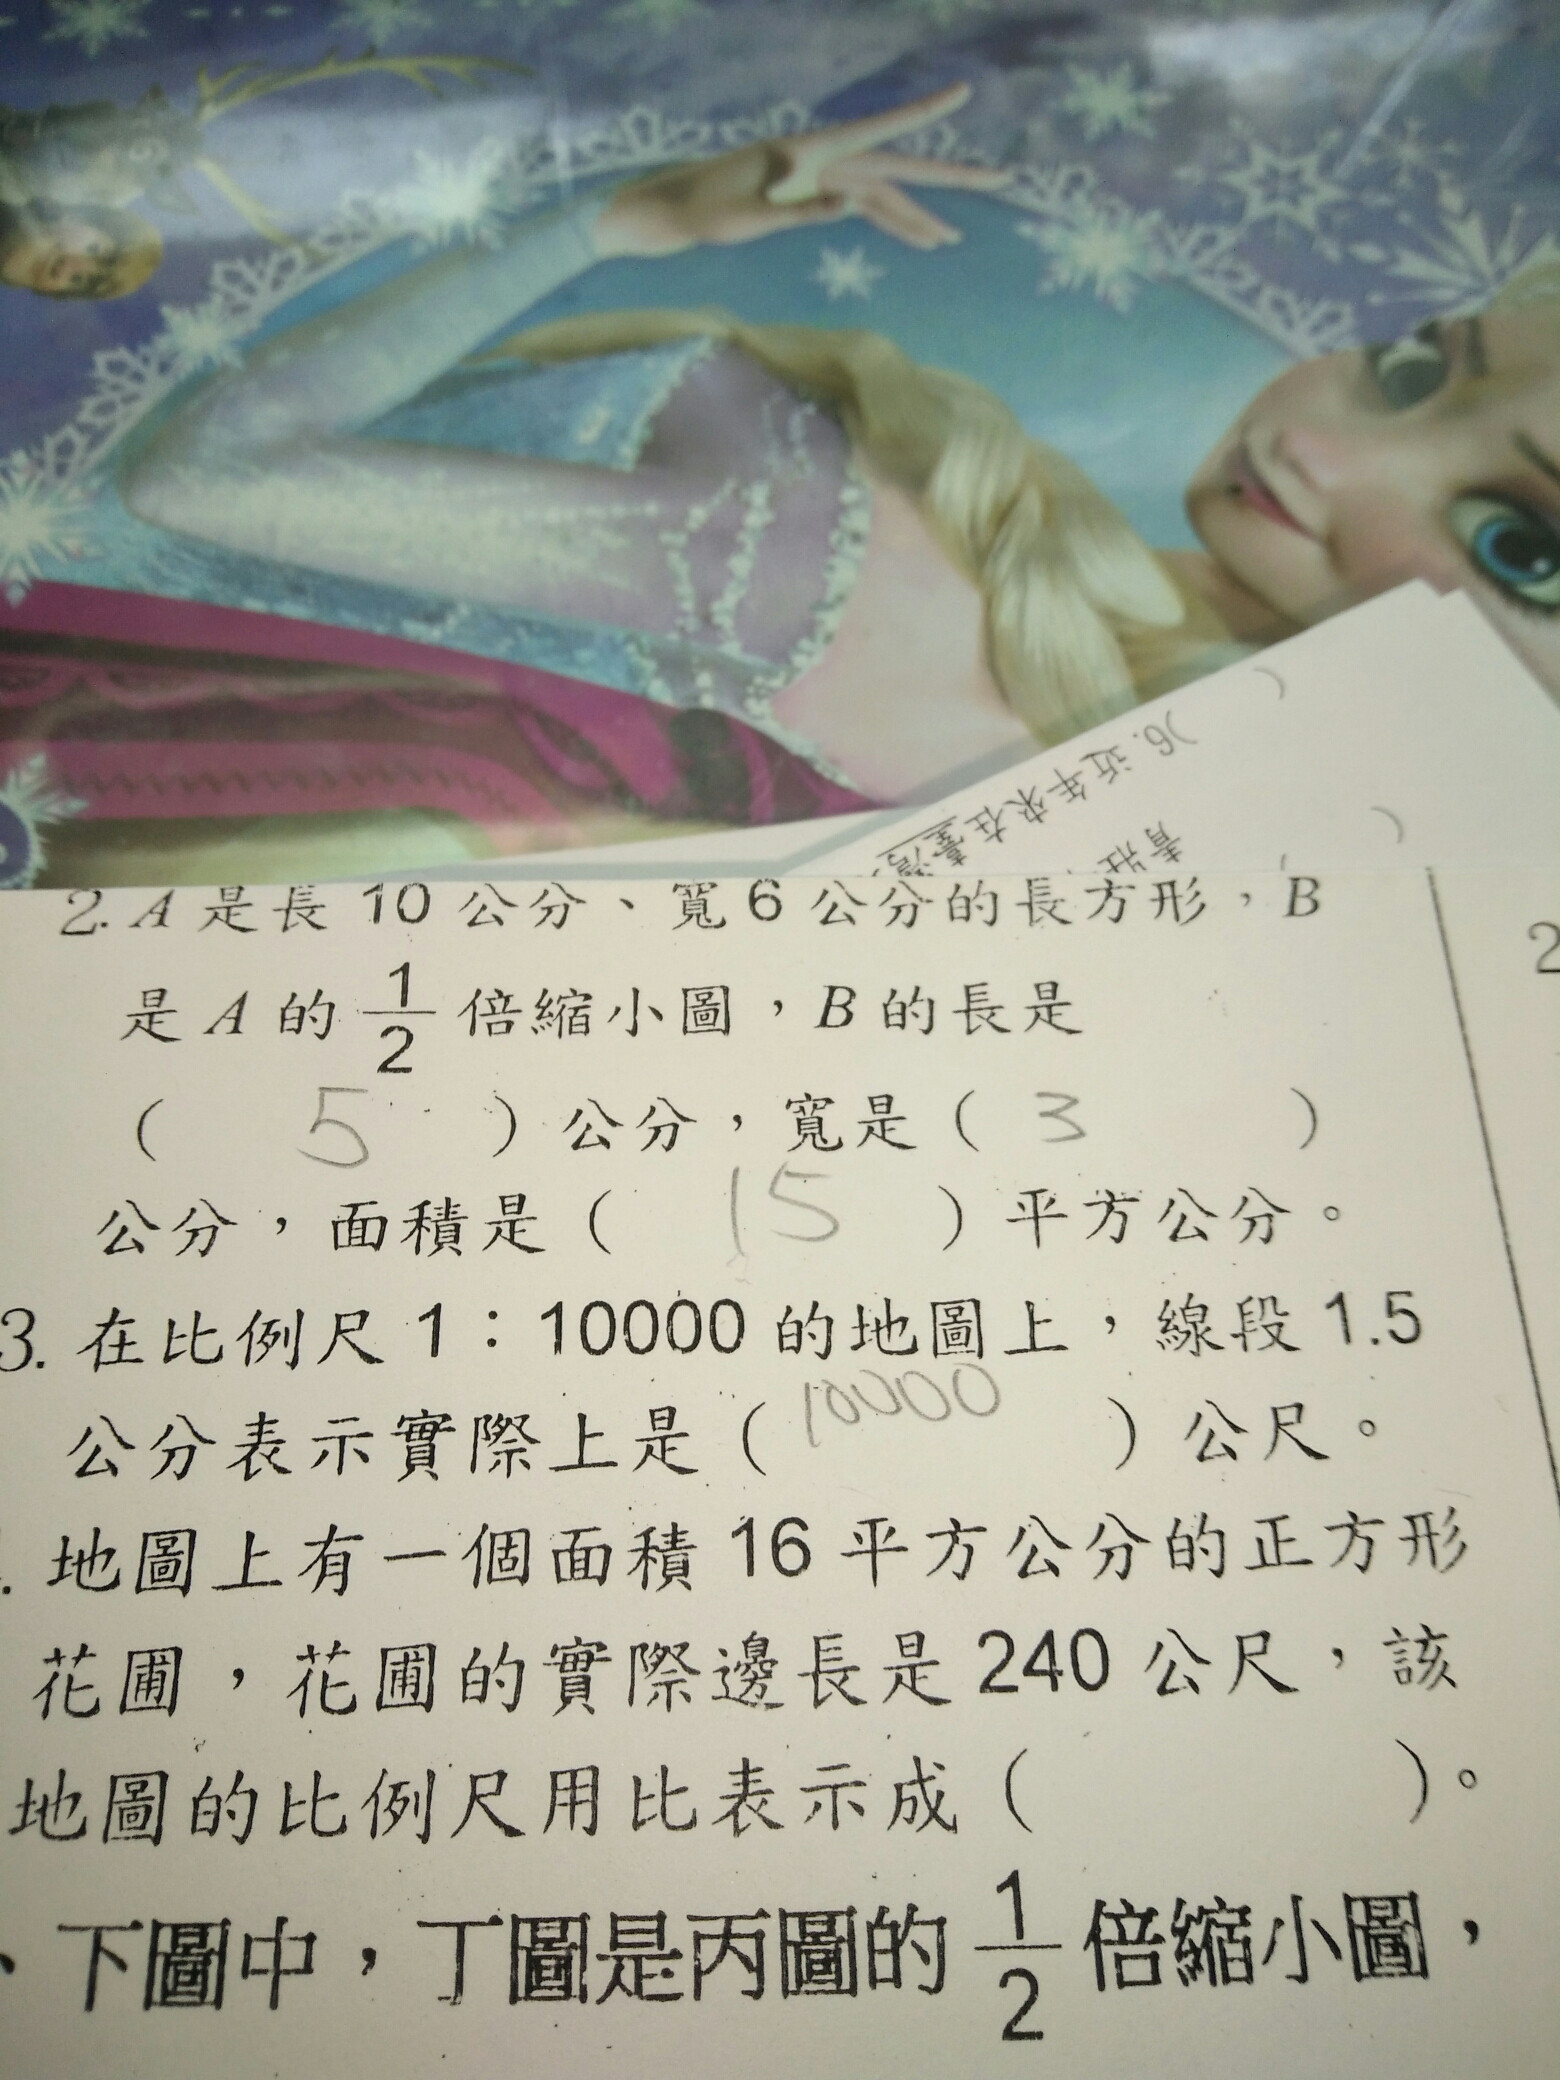 )6.近年來在臺灣
青壯
2. A 是長 10 公分、寬 6 公分的長方形，B
是 A 的 1/2 倍縮小圖，B 的長是
( 5 ) 公分，寬是 ( 3 )
公分，面積是 ( 15 ) 平方公分。
3. 在比例尺 1：10000 的地圖上，線段 1.5
公分表示實際上是 ( 10000 ) 公尺。
地圖上有一個面積 16 平方公分的正方形
花圃，花圃的實際邊長是 240 公尺，該
地圖的比例尺用比表示成 ( )。
、下圖中，丁圖是丙圖的 1/2 倍縮小圖，
2